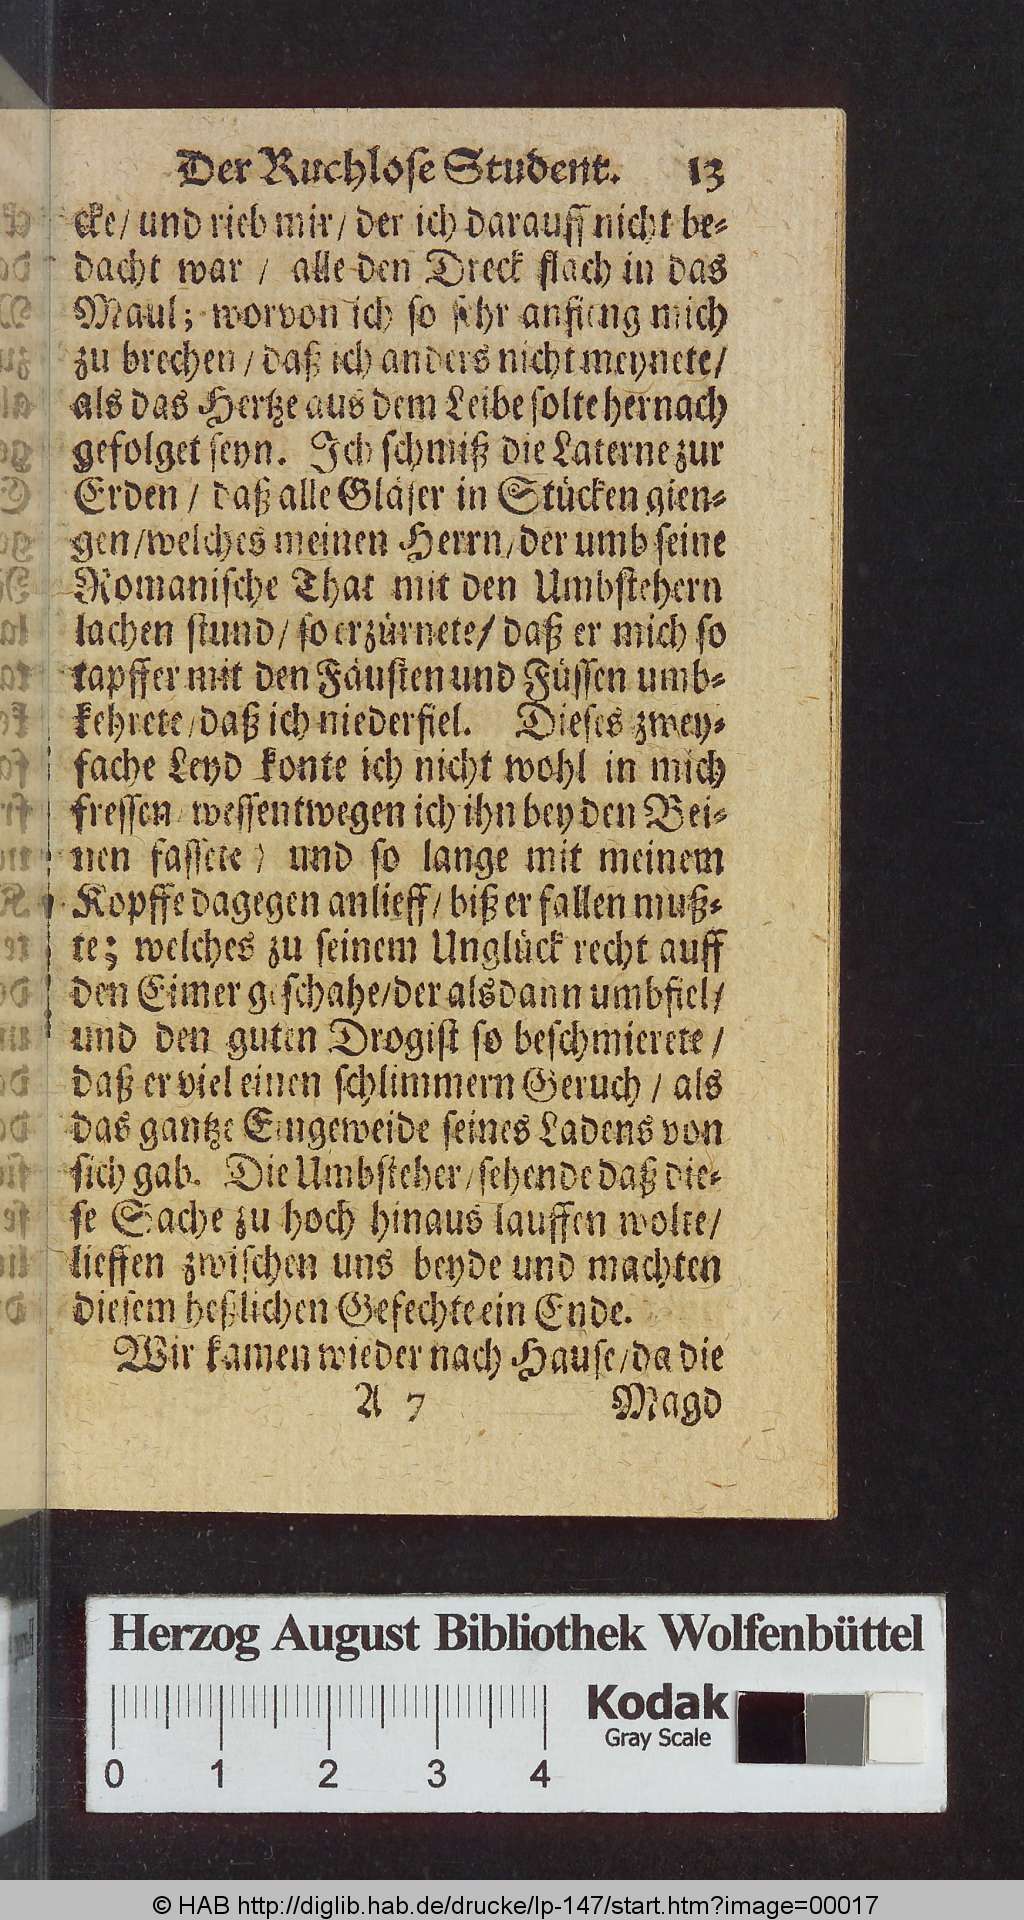 Der Ruchlose Student. 13
cke/ und rieb mir/ der ich darauff nicht be-
dacht war / alle den Dreck flach in das
Maul; worvon ich so sehr anfieng mich
zu brechen / daß ich anders nicht meynete/
als das Hertze aus dem Leibe solte hernach
gefolget seyn. Ich schmiß die Laterne zur
Erden / daß alle Gläser in Stücken gien-
gen/welches meinen Herrn/der umb seine
Romanische That mit den Umbstehern
lachen stund/ so erzürnete/ daß er mich so
tapffer mit den Fäusten und Füssen umb-
kehrete/daß ich niederfiel. Dieses zwey-
fache Leyd konte ich nicht wohl in mich
fressen/wessentwegen ich ihn bey den Bei-
nen fassete / und so lange mit meinem
Kopffe dagegen anlieff/ biß er fallen muß-
te; welches zu seinem Unglück recht auff
den Eimer geschahe/der alsdann umbfiel/
und den guten Drogist so beschmierete /
daß er viel einen schlimmern Geruch / als
das gantze Eingeweide seines Ladens von
sich gab. Die Umbsteher/sehende daß die-
se Sache zu hoch hinaus lauffen wolte/
lieffen zwischen uns beyde und machten
diesem heßlichen Gefechte ein Ende.
Wir kamen wieder nach Hause/da die
A 7 Magd
Herzog August Bibliothek Wolfenbüttel
Kodak
Gray Scale
0 1 2 3 4
© HAB http://diglib.hab.de/drucke/lp-147/start.htm?image=00017